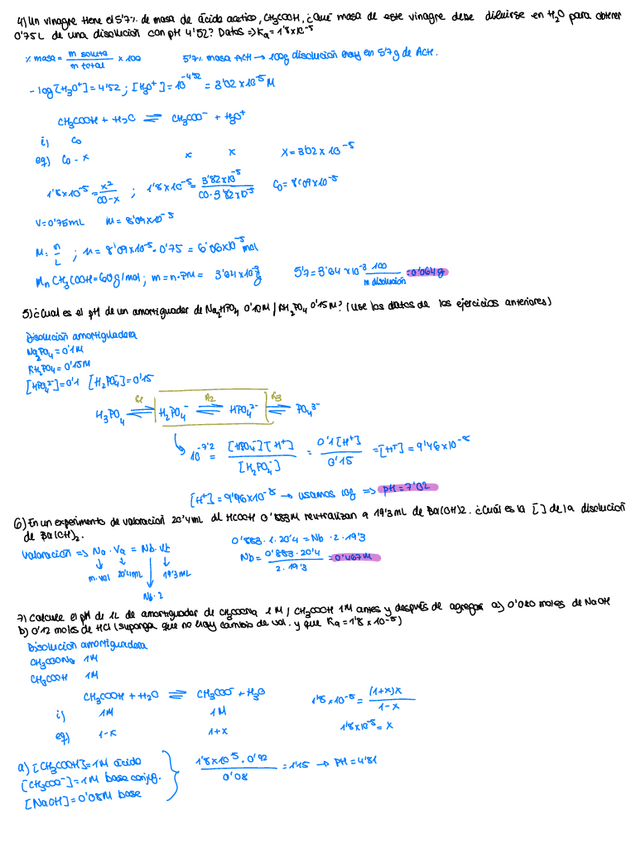 4) Un vinagre tiene el 5'7% de masa de ácido acético, CH3COOH, ¿Qué masa de este vinagre debe diluirse en H2O para obtener
0'75L de una disolución con pH 4'52? Datos => Ka = 1'8x10^-5
% masa = m soluto / m total x 100   5'7% masa ACH → 100g disolución hay en 5'7g de ACH.
- log[H3O+] = 4'52 ; [H3O+] = 10^-4'52 = 3'02 x 10^-5 M
CH3COOH + H2O ⇌ CH3COO- + H3O+
i) Co
eq) Co - x   x   x   X = 3'02 x 10^-5
1'8x10^-5 = x^2 / Co-x ; 1'8x10^-5 = 3'82x10^-5 / Co-3'82x10^-5   Co = 8'09x10^-5
V = 0'75mL   M = 8'09x10^-5
M = n / L ; n = 8'09x10^-5 · 0'75 = 6'06x10^-5 mol
Mn CH3COOH = 60g/mol ; m = n·PM = 3'64x10^-3 g   5'7 = 3'64x10^-3 100 / m disolución = 0'064g
5) ¿Cual es el pH de un amortiguador de Na2HPO4 0'10M / KH2PO4 0'15M? (Use los datos de los ejercicios anteriores)
Disolución amortiguadora
Na2PO4 = 0'1M
KH2PO4 = 0'15M
[HPO4^2-] = 0'1 [H2PO4-] = 0'15
K1 K2 K3
H3PO4 ⇌ H2PO4- ⇌ HPO4^2- ⇌ PO4^3-
10^-7'2 = [HPO4-][H+] / [H2PO4-] = 0'1[H+] / 0'15 = [H+] = 9'46x10^-8
[H+] = 9'46x10^-8 → usamos log => pH = 7'02
6) En un experimento de valoración 20'4mL de HCOOH 0'883M neutralizan a 19'3mL de Ba(OH)2. ¿Cuál es la [ ] de la disolución
de Ba(OH)2.
Valoración => Na · Va = Nb · Vb   0'883 · 1 · 20'4 = Nb · 2 · 19'3
m·val 20'4mL 19'3mL   Nb = 0'883 · 20'4 / 2 · 19'3 = 0'467M
Nb · 2
7) Calcule el pH de 1L de amortiguador de CH3COONa 1M / CH3COOH 1M antes y después de agregar a) 0'080 moles de NaOH
b) 0'12 moles de HCl (suponga que no hay cambio de vol. y que Ka = 1'8 x 10^-5)
Disolución amortiguadora
CH3COONa 1M
CH3COOH 1M
CH3COOH + H2O ⇌ CH3COO- + H3O   1'8x10^-5 = (1+x)x / 1-x
i) 1M   1M   1'8x10^-5 = x
eq) 1-x   1+x
a) [CH3COOH] = 1M ácido
[CH3COO-] = 1M base conjug.   1'8x10^-5 · 0'92 / 0'08 = 1'15 → pH = 4'81
[NaOH] = 0'08M base